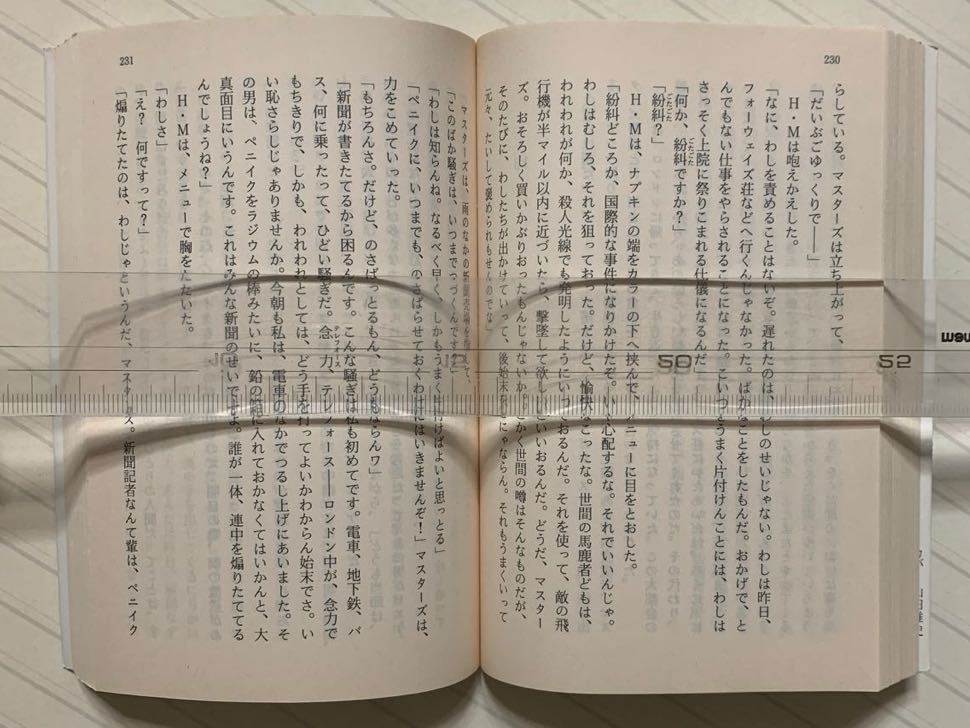 230
らしている。マスターズは立ち上がって、
「だいぶごゆっくりで――」
H・Mは咆えかえした。
「なに、わしを責めることはないぞ。遅れたのは、わしのせいじゃない。わしは昨日、
フォーウェイズ荘などへ行くんじゃなかった。ばかなことをしたもんだ。おかげで、と
んでもない仕事をやらされることになった。こいつをうまく片付けんことには、わしは
さっそく上院に祭りこまれる仕儀になるんだ」
「何か、紛糾ですか？」
ごたごた
「紛糾？」
ごたごた
H・Mは、ナプキンの端をカラーの下へ挟んで、メニューに目をとおした。
「紛糾どころか、国際的な事件になりかけたぞ。いや心配するな。それでいいんじゃ。
ごたごた
わしはむしろ、それを狙っておった。だけど、愉快なこったな。世間の馬鹿者どもは、
われわれが何か、殺人光線でも発明したようにいっておるんだ。それを使って、敵の飛
行機が半マイル以内に近づいたら、撃墜して欲しいといいおるんだ。どうだ、マスター
ズ。おそろしく買いかぶりおったもんじゃないか。とかく世間の噂はそんなものだが、
そのたびに、わしたちが出かけていって、後始末をせにゃならん。それもうまくいって
元々、たいして褒められもせんのでな」
231
マスターズは、雨のなかの新聞売場を指して、
「このばか騒ぎは、いつまでつづくんです？」
「わしは知らんね。なるべく早く、しかもうまく片付けばよいと思っとる」
「ペニイクに、いつまでも、のさばらせておくわけにはいきませんぞ！」マスターズは、
力をこめていった。
「もちろんさ。だけど、のさばっとるもん、どうもならんワ」
「新聞が書きたてるから困るんです。こんな騒ぎは私も初めてです。電車、地下鉄、バ
ス、何に乗ったって、ひどい騒ぎだ。念力、テレフォース――ロンドン中が、念力で
テレフォース
もちきりで、しかも、われわれとしては、どう手を打ってよいかわからん始末でさ。い
い恥さらしじゃありませんか。今朝も私は、電車のなかでつるし上げにあいました。そ
の男は、ペニイクをラジウムの棒みたいに、鉛の箱に入れておかなくてはいかんと、大
真面目にいうんです。これはみんな新聞のせいですよ。誰が一体、連中を煽りたてる
んでしょうね？」
H・Mは、メニューで胸をたたいた。
「わしさ」
「え？　何ですって？」
「煽りたてたのは、わしじゃというんだ、マスターズ。新聞記者なんて輩は、ペニイク
50
52